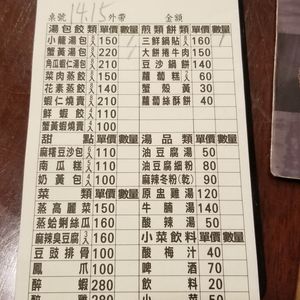 桌號 1415 外帶 金額
湯包餃類 單價 數量 煎類餅類 單價 數量
小籠湯包 150 三鮮鍋貼 160
蟹黃湯包 220 大餅捲牛肉 150
角瓜蝦仁湯包 210 豆沙鍋餅 140
菜肉蒸餃 150 蘿蔔糕 60
花素蒸餃 140 蟹殼黃 30
蝦仁燒賣 210 蘿蔔絲酥餅 40
鮮蝦餃 110
蟹黃蝦燒賣 110 湯品類 單價 數量
甜點 單價 數量 油豆腐湯 50
麻糬豆沙包 110 油豆腐細粉 80
南瓜糕 110 麻辣冬粉(乾) 90
奶黃包 100 原盅雞湯 140
菜類 單價 數量 牛腩湯 140
蒸高麗菜 150 酸辣湯 50
蒸蛤蜊絲瓜 160 小菜飲料 單價 數量
麻辣臭豆腐 160 酸梅汁 40
豆豉排骨 100 啤酒 70
鳳爪 100 飲料 20
醉蝦 280 小菜 50
醉雞 280